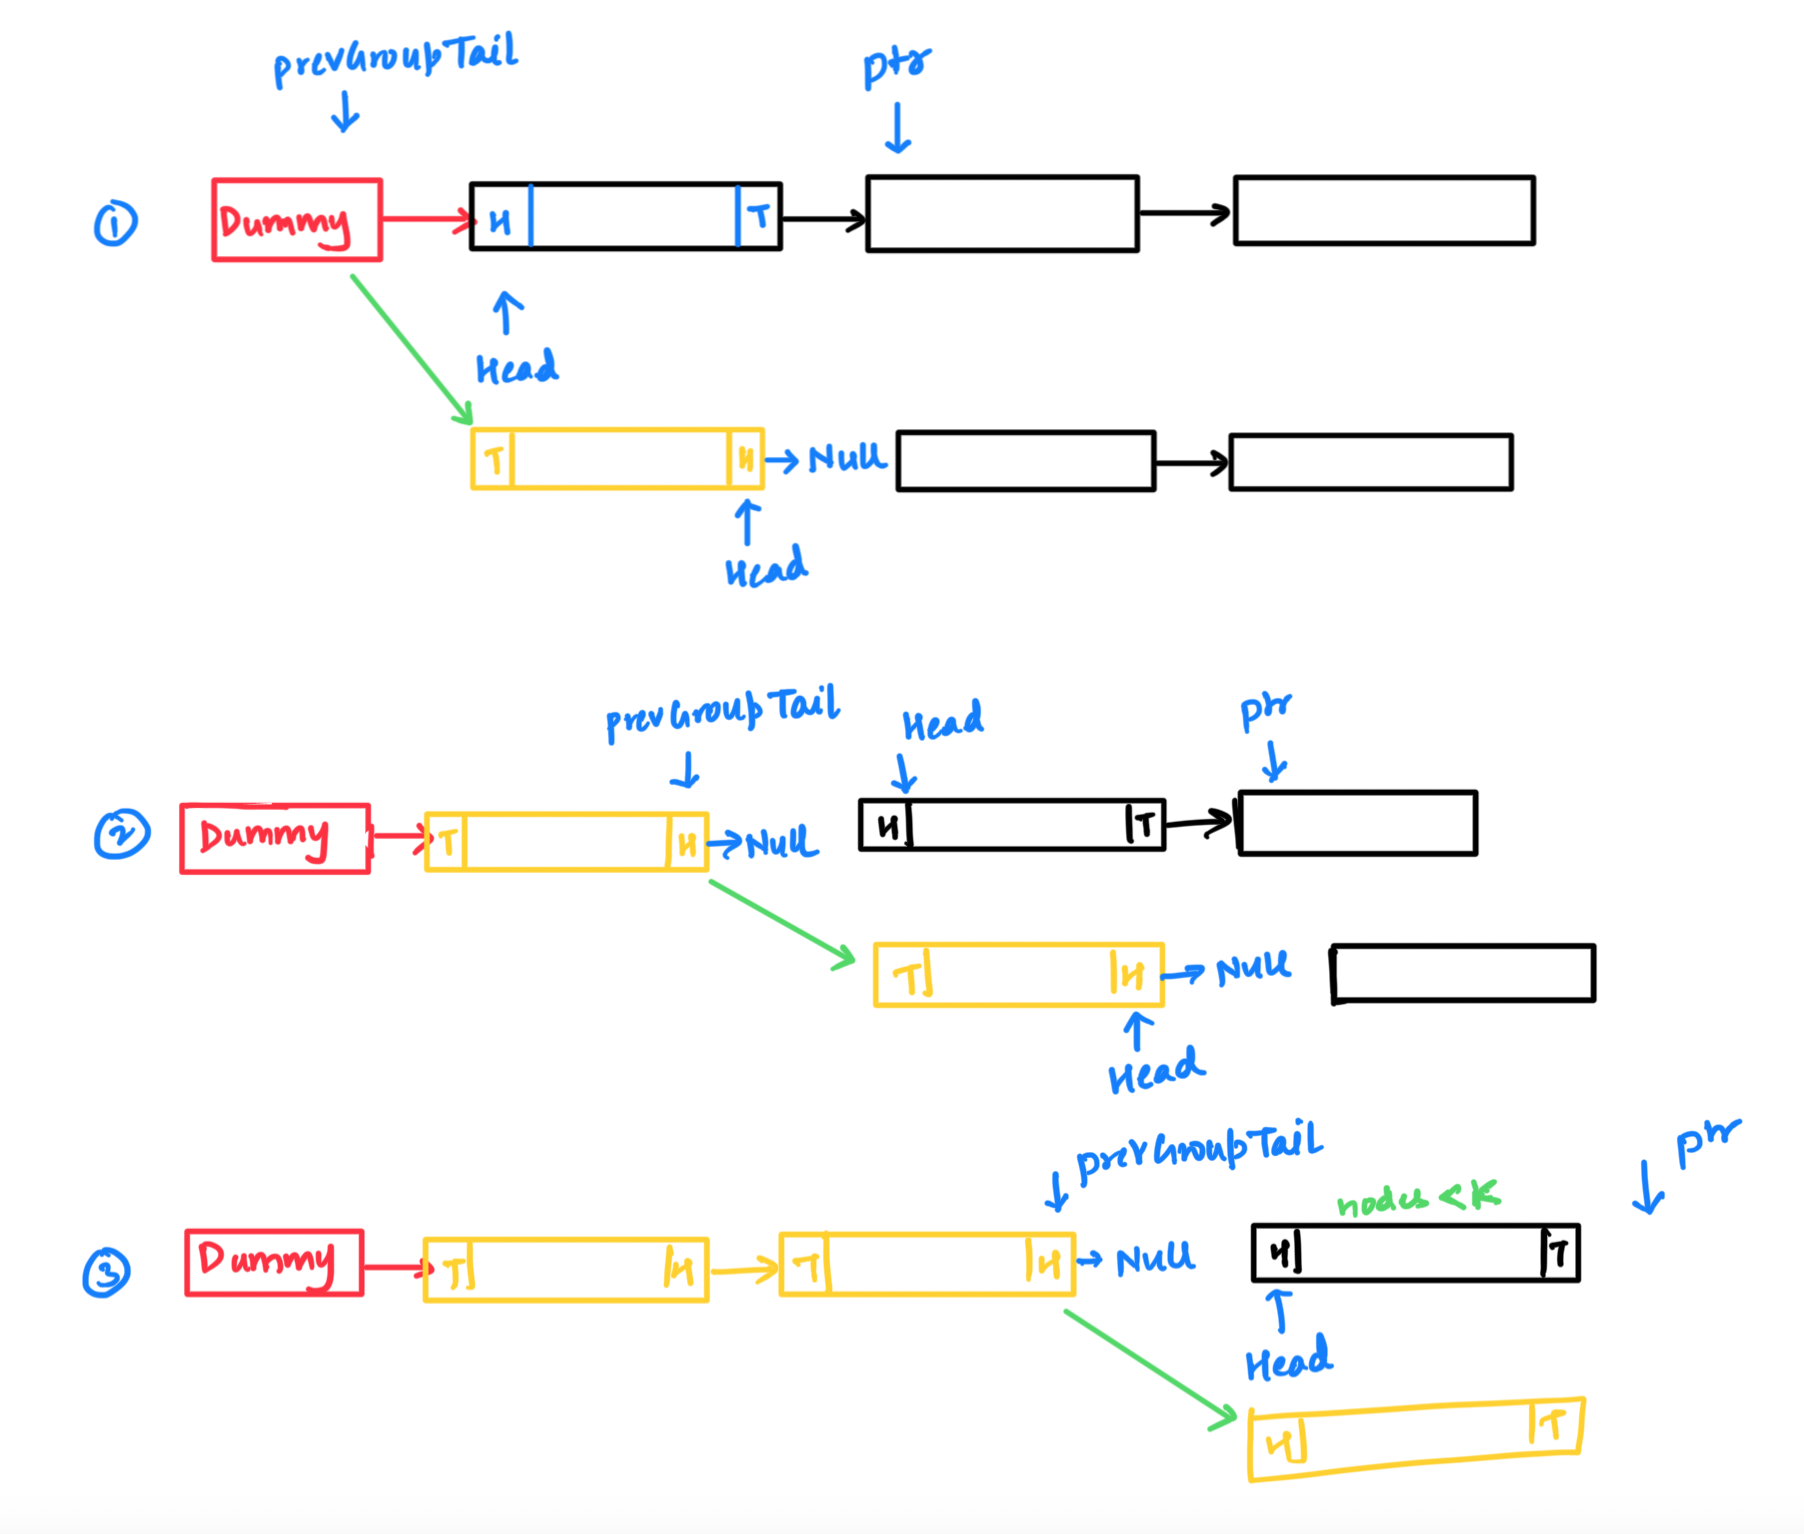 prevGroupTail ptr
① Dummy H T
Head
T H Null
Head
prevGroupTail Head ptr
② Dummy T H Null H T
T H Null
Head
prevGroupTail ptr
nodes < K
③ Dummy T H T H Null H T
Head
H T